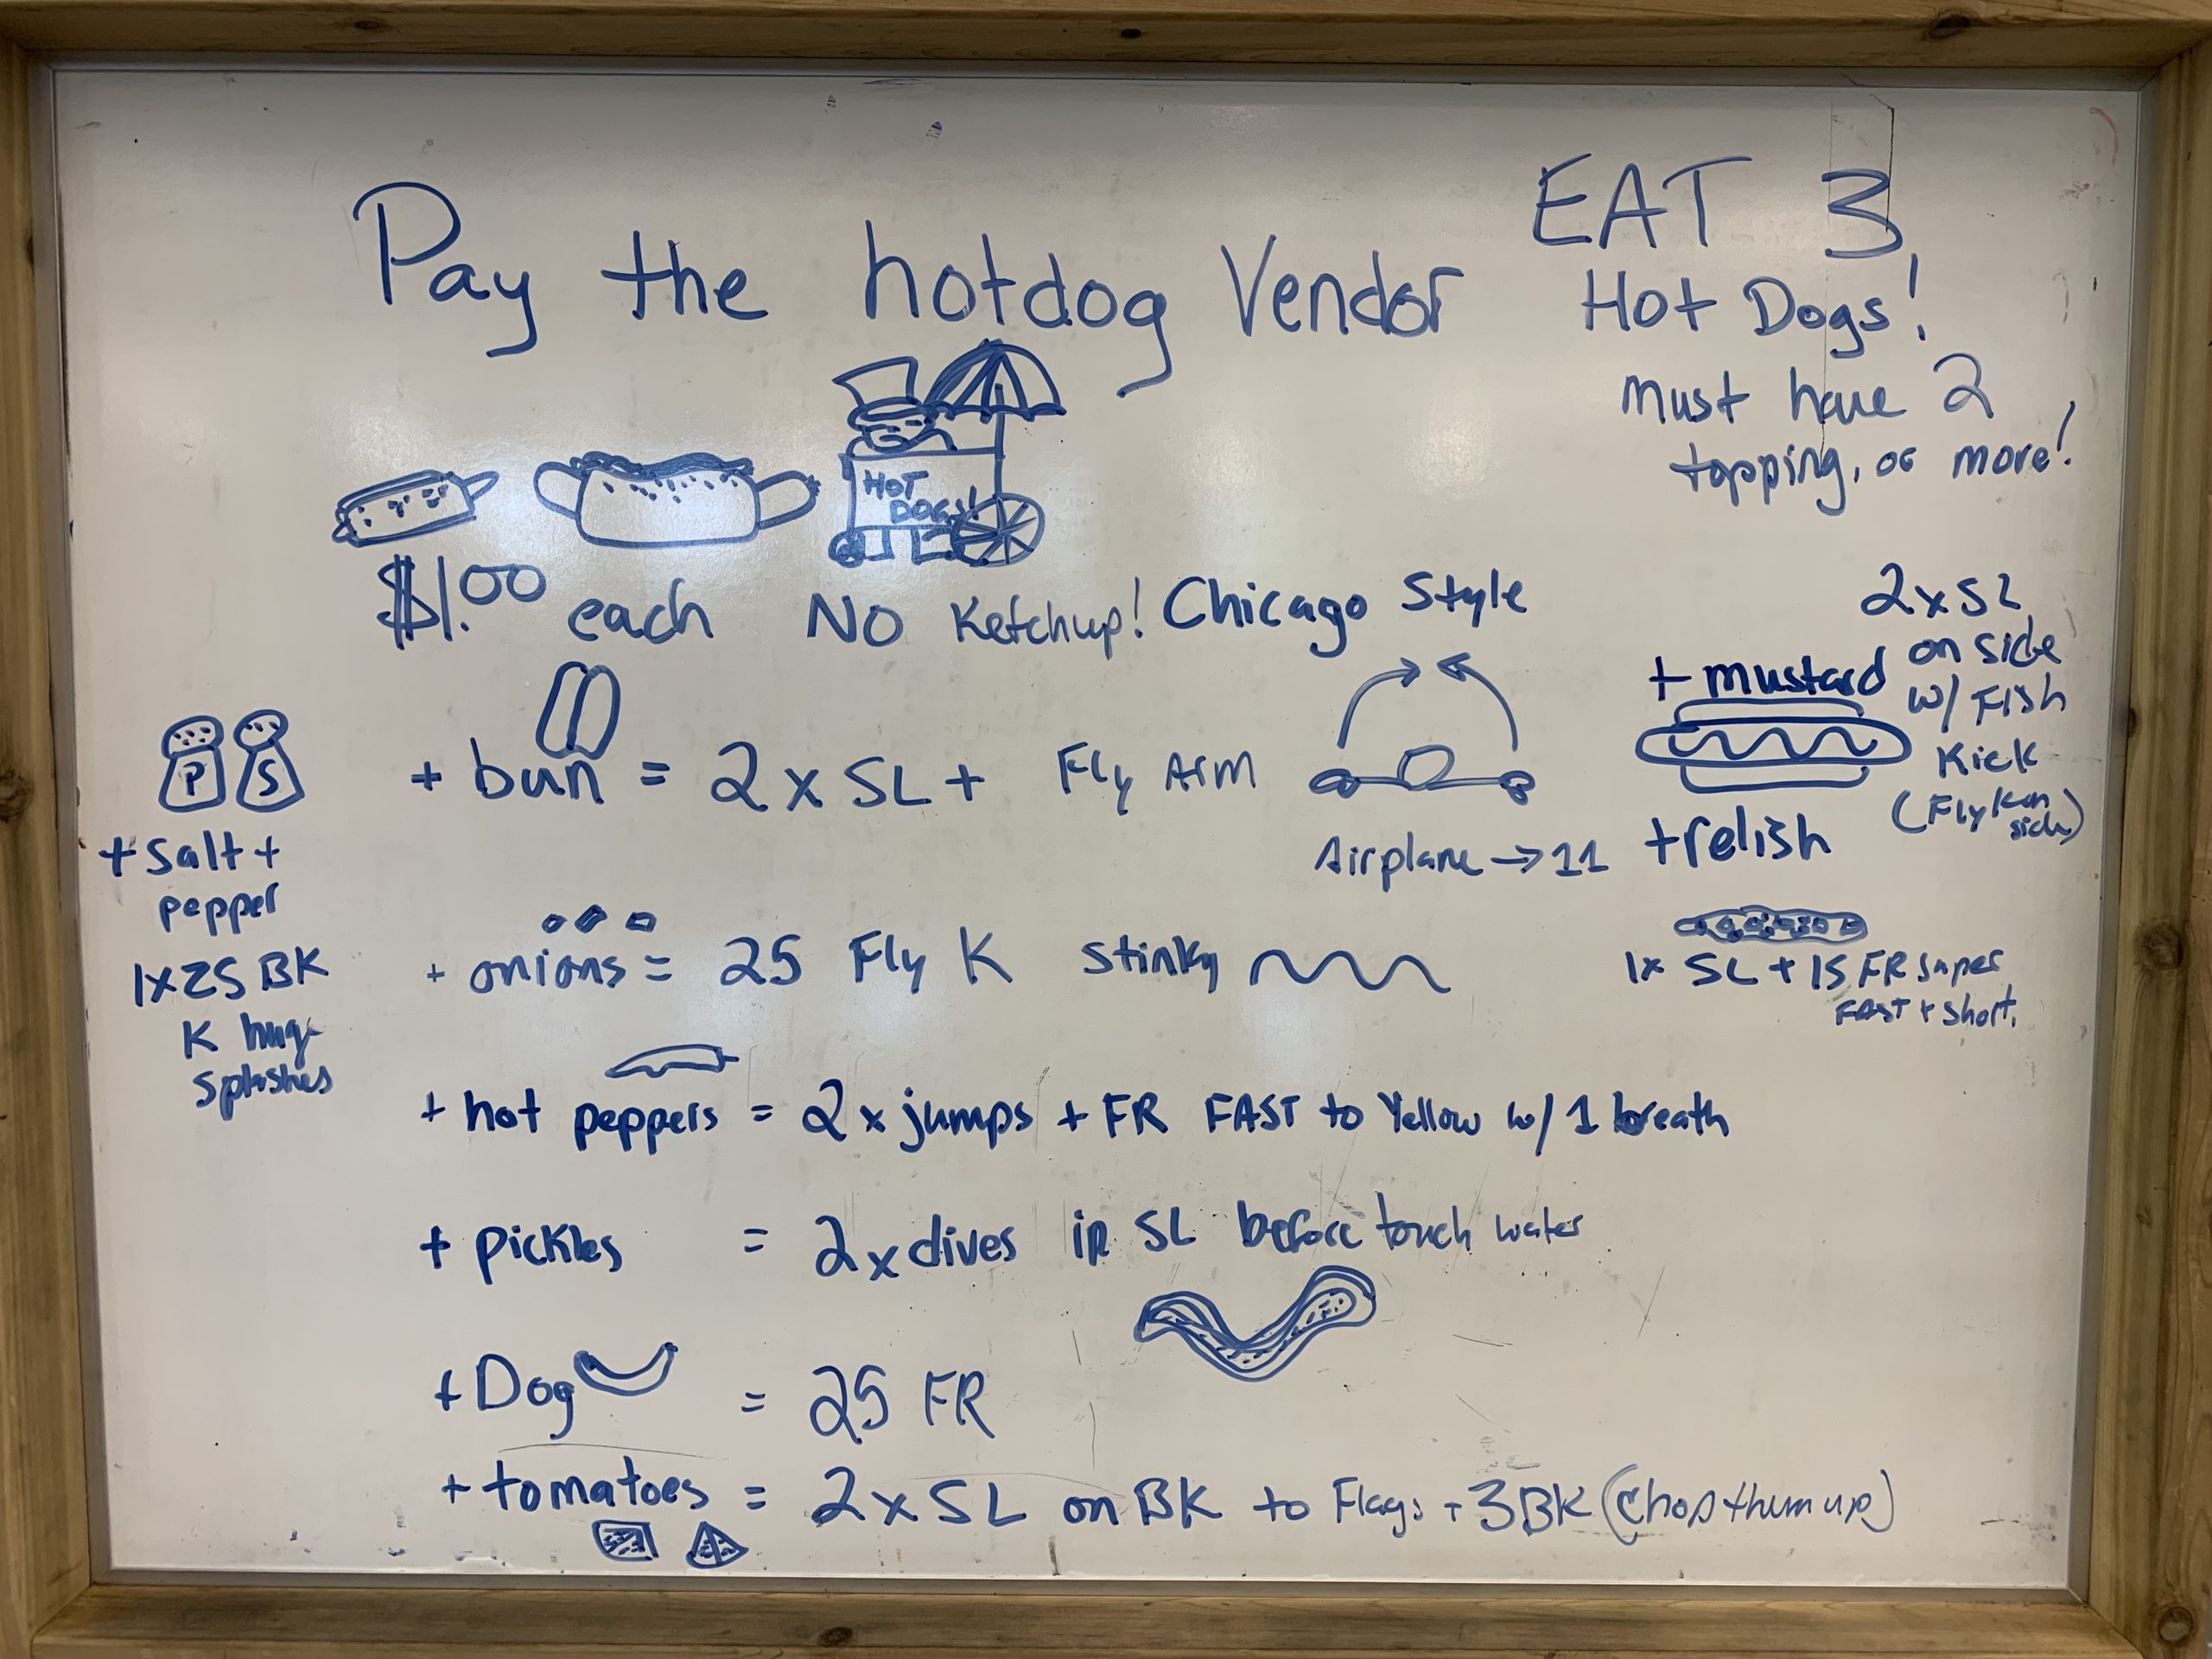 Pay the hotdog Vendor
EAT 3
Hot Dogs!
must have 2
topping, or more!
HOT
DOGS!
$1.00 each NO Ketchup! Chicago Style
P S
+ salt +
pepper
1x25 BK
K huge
splashes
+ bun = 2 x SL + Fly Arm
Airplane → 11
+ mustard
2xSL
on side
w/ Fish
Kick
(Fly K on
side)
+ relish
1x SL + 15 FR super
FAST + short.
+ onions = 25 Fly K stinky
+ hot peppers = 2 x jumps + FR FAST to Yellow w/ 1 breath
+ pickles = 2 x dives in SL before touch water
+ Dog = 25 FR
+ tomatoes = 2 x SL on BK to Flags + 3 BK (chop them up)